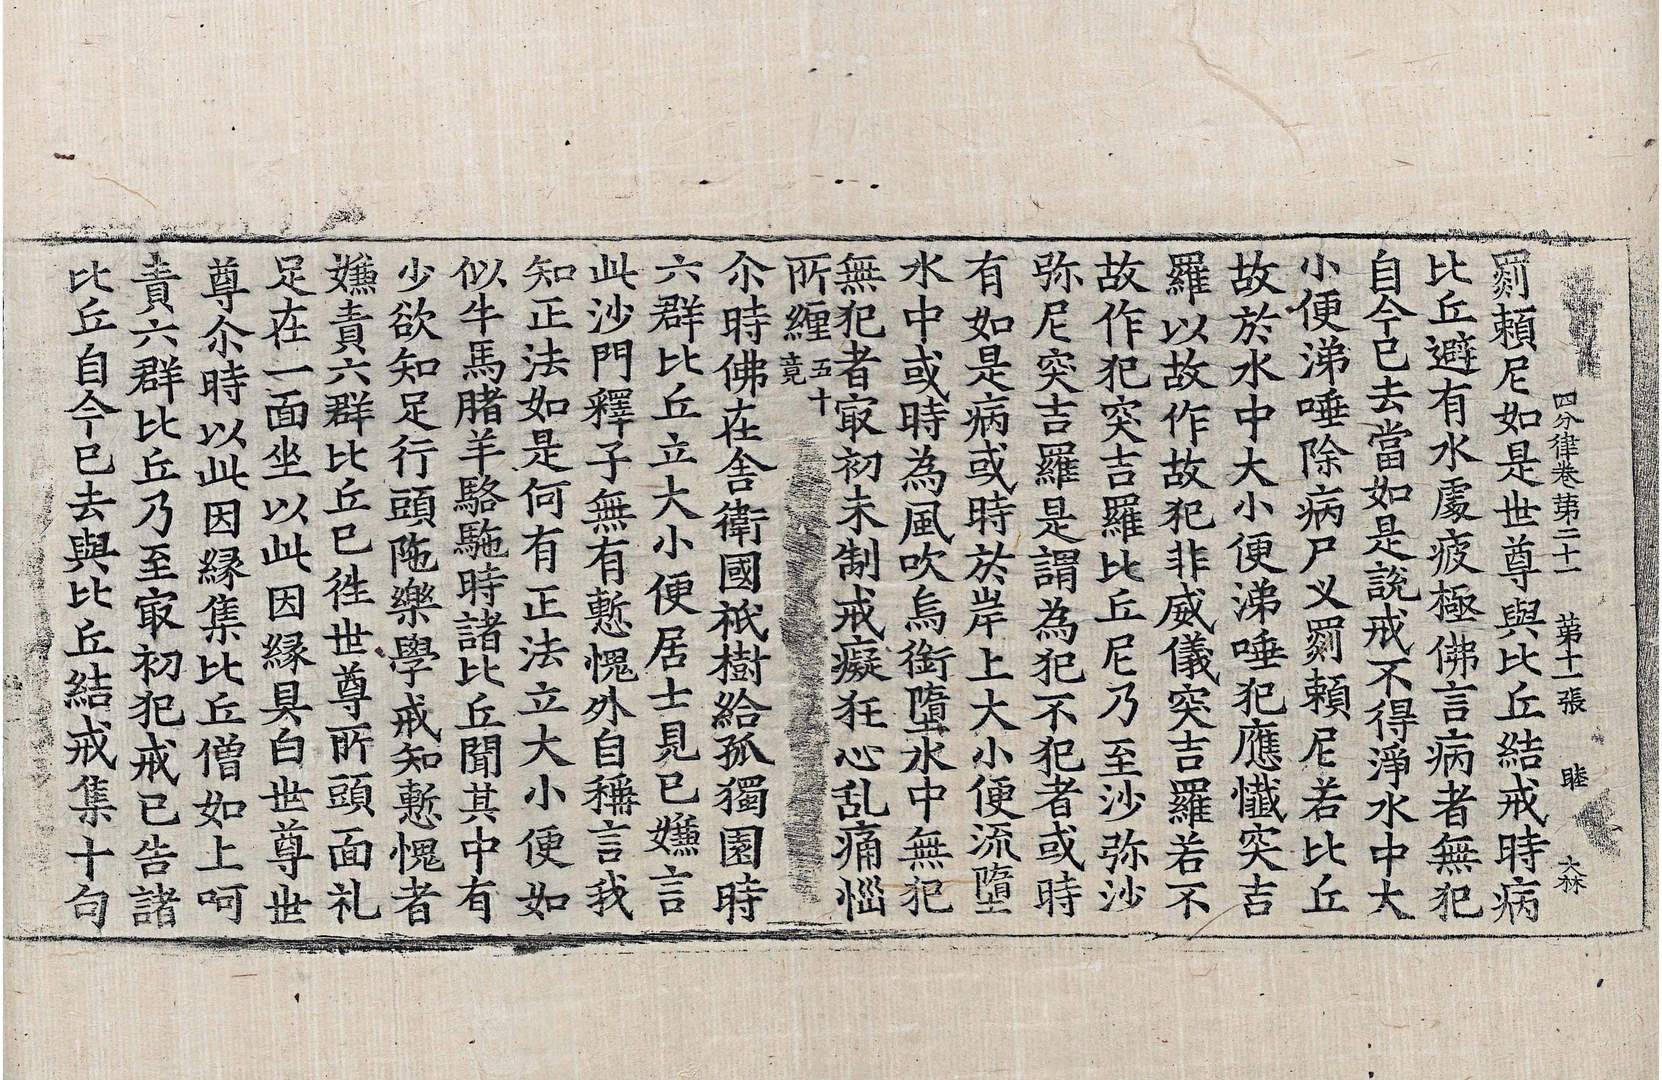 四分律卷第二十一 第十一張 睦 大林
罽賴尼如是世尊與比丘結戒時病
比丘避有水處疲極佛言病者無犯
自今已去當如是說戒不得淨水中大
小便涕唾除病尸叉罽賴尼若比丘
故於水中大小便涕唾犯應懺突吉
羅以故作故犯非威儀突吉羅若不
故作犯突吉羅比丘尼乃至沙弥沙
弥尼突吉羅是謂為犯不犯者或時
有如是病或時於岸上大小便流墮
水中或時為風吹鳥銜墮水中無犯
無犯者㝡初未制戒癡狂心乱痛惱
所纏五十竟
尒時佛在舍衛國祇樹給孤獨園時
六群比丘立大小便居士見已嫌言
此沙門釋子無有慙愧外自稱言我
知正法如是何有正法立大小便如
似牛馬腤羊駱駞時諸比丘聞其中有
少欲知足行頭陁樂學戒知慙愧者
嫌責六群比丘已徃世尊所頭面礼
足在一面坐以此因緣具白世尊世
尊尒時以此因緣集比丘僧如上呵
責六群比丘乃至㝡初犯戒已告諸
比丘自今已去與比丘結戒集十句